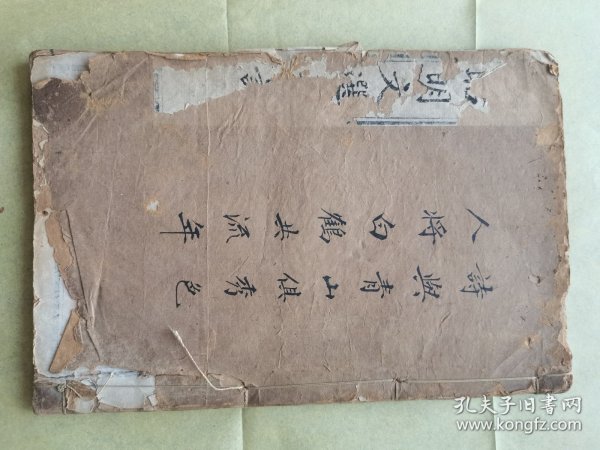 詩與青山俱秀色
人將白鶴共流年
明文選
孔夫子旧書网
www.kongfz.com